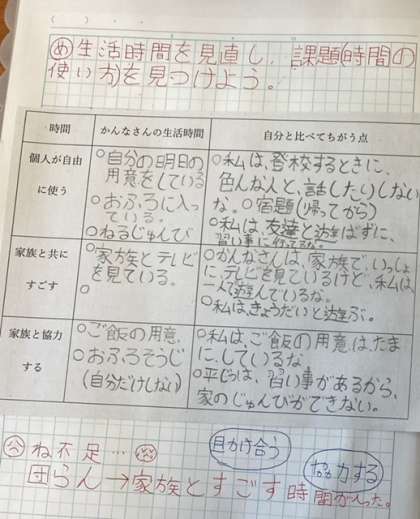 ( )・・
め生活時間を見直し、課題(時間の
使い方)を見つけよう。
時間
かんなさんの生活時間
自分と比べてちがう点
個人が自由
に使う
○自分の明日の
用意をしている
○おふろに入っ
ている。
○ねるじゅんび
○私は、登校するときに、
色んな人と、話したりしない
な。○宿題(帰ってから)
○私は、友達と遊ばずに、
習い事に行ってるな。
家族と共に
すごす
○家族とテレビ
を見ている。
○
○かんなさんは、家族で、いっしょ
に、テレビを見ているけど、私は、
一人で遊んでいるな。
○私は、きょうだいと遊ぶ。
家族と協力
する
○ご飯の用意。
○おふろそうじ
(自分だけしない)
○私は、ご飯の用意は、たま
に、しているな
○平じつは、習い事があるから、
家のじゅんびができない。
ね不足…
声かけ合う
協力する
団らん→家族とすごす時間がへった。